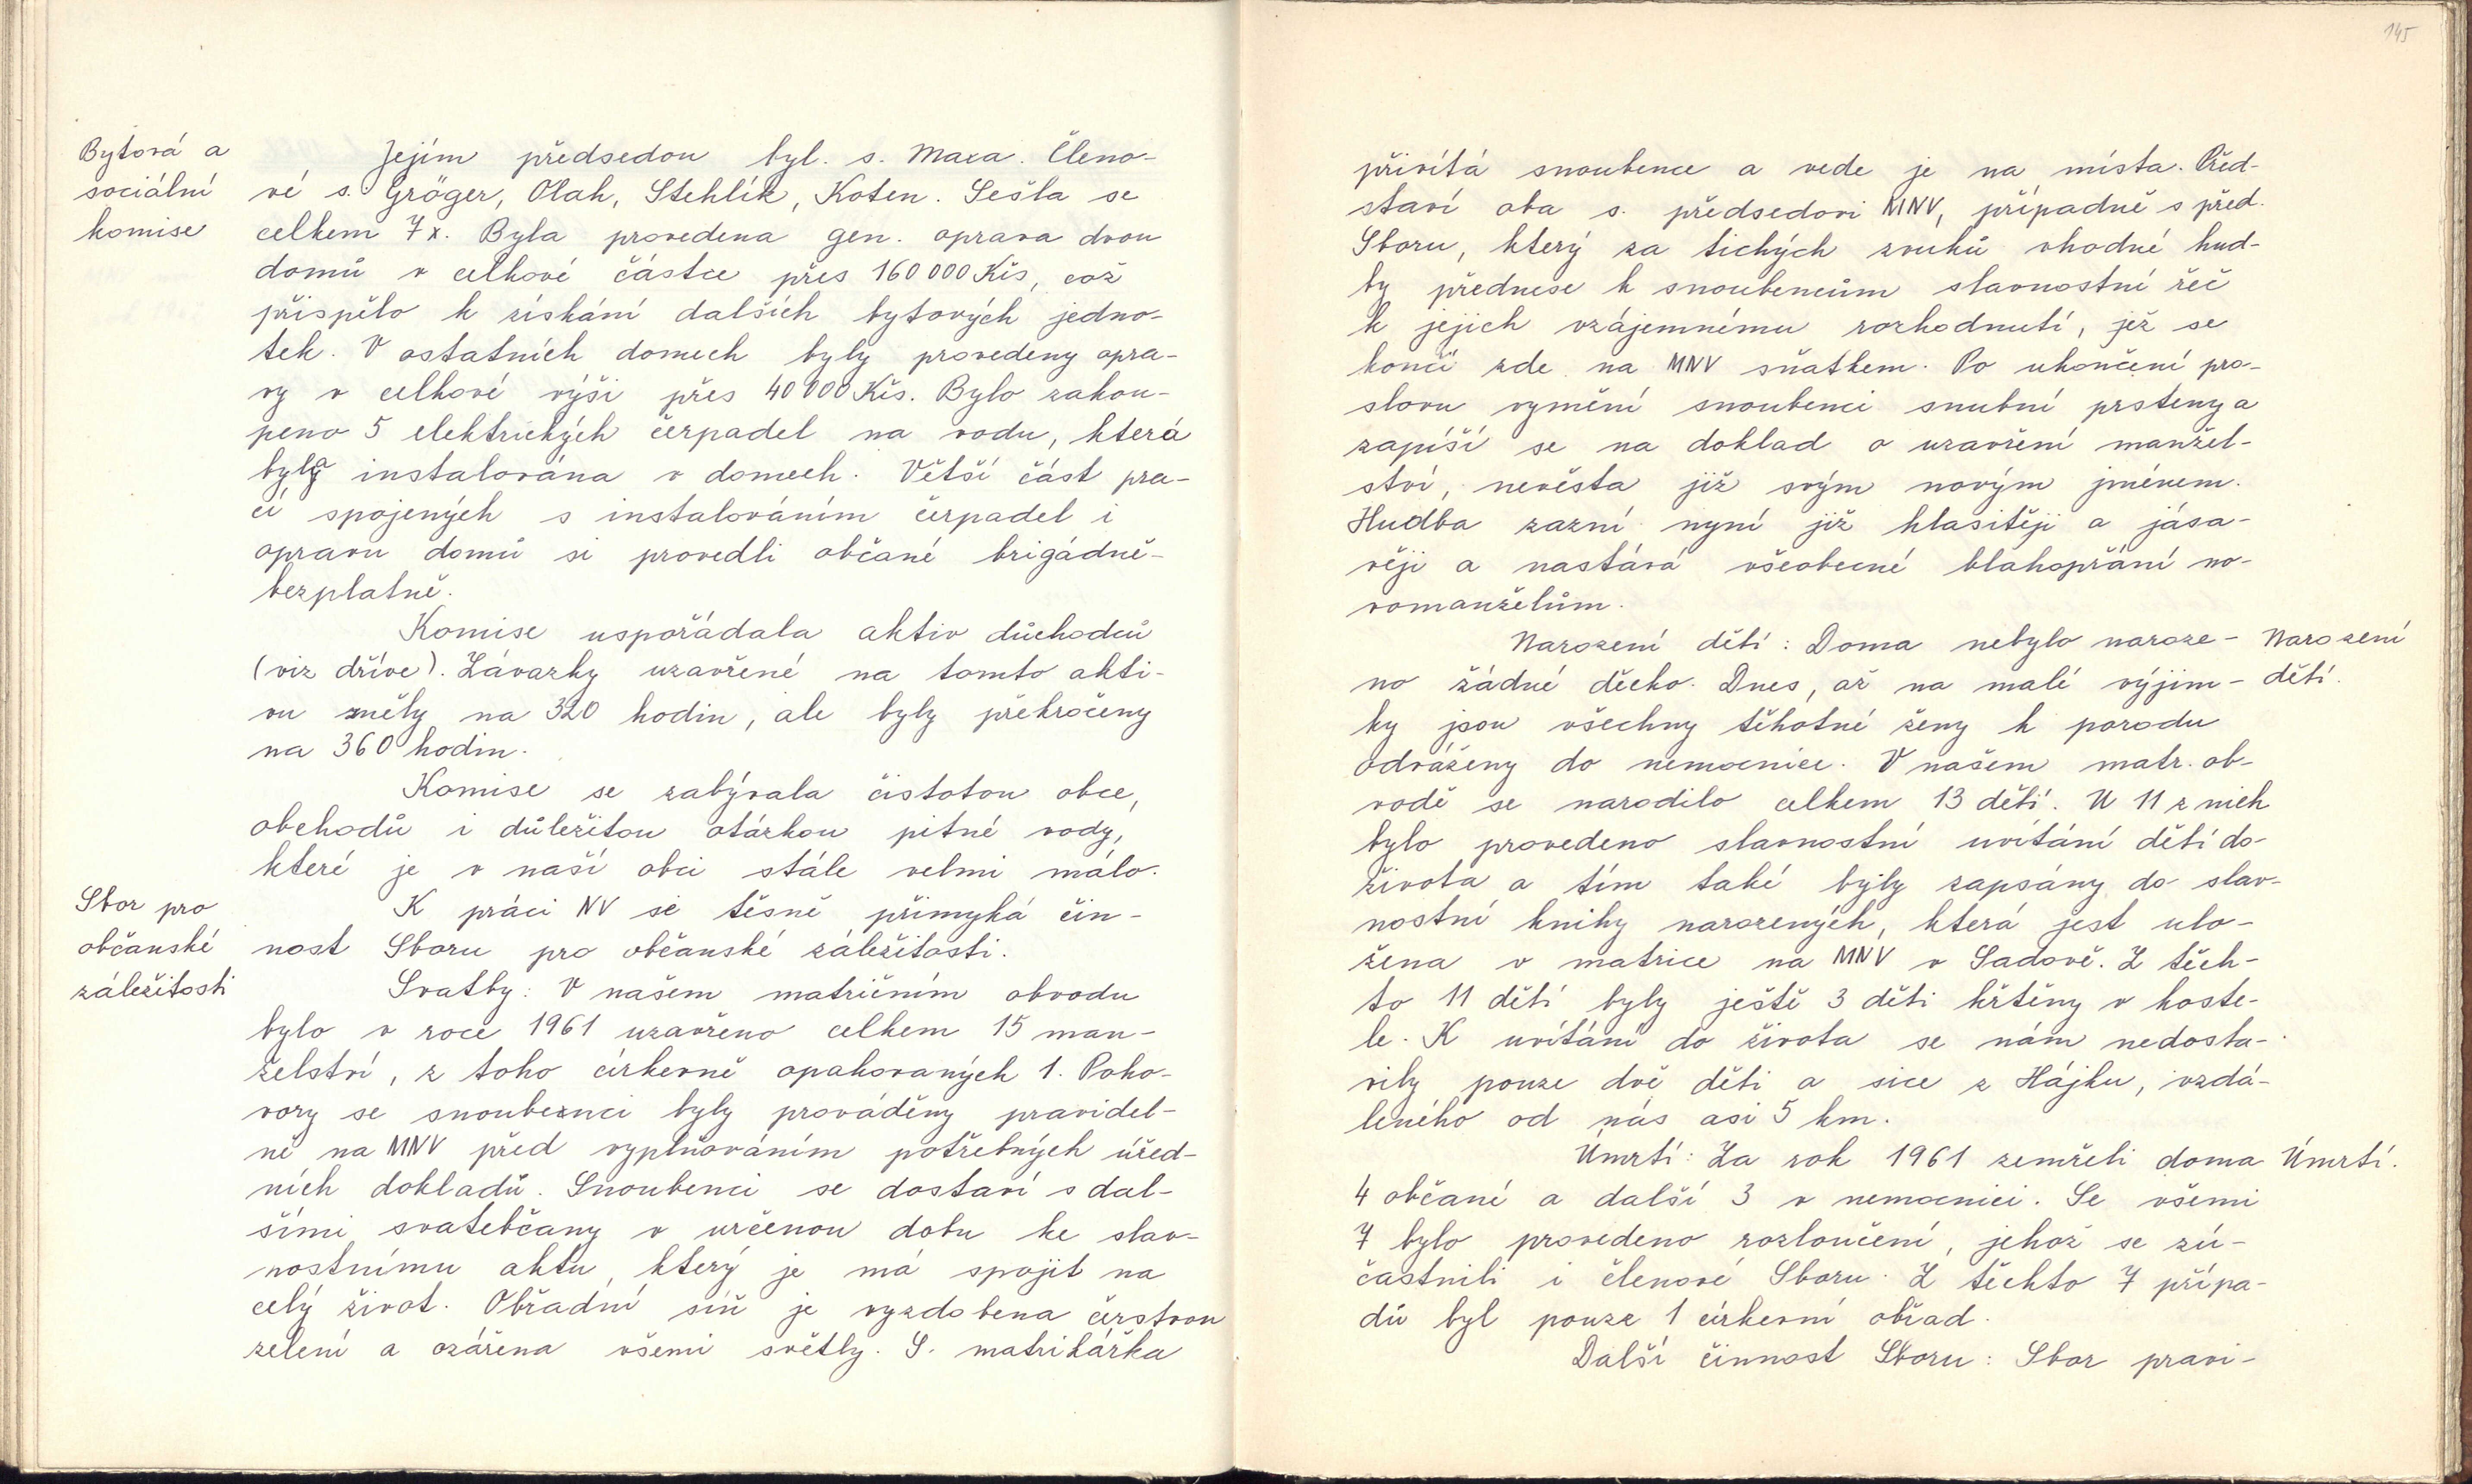 145
Bytová a
sociální
komise
Jejím předsedou byl. s. Maxa. Členo-
vé s. Gröger, Olah, Stehlík, Koten. Sešla se
celkem 7x. Byla provedena gen. oprava dvou
domů v celkové částce přes 160 000 Kčs, což
přispělo k získání dalších bytových jedno-
tek. V ostatních domech byly provedeny opra-
vy v celkové výši přes 40 000 Kčs. Bylo zakou-
peno 5 elektrických čerpadel na vodu, která
byla instalována v domech. Větší část pra-
cí spojených s instalováním čerpadel i
opravu domů si provedli občané brigádně-
bezplatně.
Komise uspořádala aktiv důchodců
(viz dříve). Závazky uzavřené na tomto akti-
vu zněly na 320 hodin, ale byly překročeny
na 360 hodin.
Komise se zabývala čistotou obce,
obchodů i důležitou otázkou pitné vody,
které je v naší obci stále velmi málo.
Sbor pro
občanské
záležitosti
K práci NV se těsně přimyká čin-
nost Sboru pro občanské záležitosti.
Svatby: V našem matričním obvodu
bylo v roce 1961 uzavřeno celkem 15 man-
želství, z toho církevně opakovaných 1. Poho-
vory se snoubenci byly prováděny pravidel-
ně na MNV před vyplňováním potřebných úřed-
ních dokladů. Snoubenci se dostaví s dal-
šími svatebčany v určenou dobu ke slav-
nostnímu aktu, který je má spojit na
celý život. Obřadní síň je vyzdobena čerstvou
zelení a ozářena všemi světly. S. matrikářka
přivítá snoubence a vede je na místa. Před-
staví oba s. předsedovi MNV, případně s před.
Sboru, který za tichých zvuků vhodné hud-
by přednese k snoubencům slavnostní řeč
k jejich vzájemnému rozhodnutí, jež se
končí zde na MNV sňatkem. Po ukončení pro-
slovu vymění snoubenci snubní prsteny a
zapíší se na doklad o uzavření manžel-
ství, nevěsta již svým novým jménem.
Hudba zazní nyní již hlasitěji a jása-
věji a nastává všeobecné blahopřání no-
vomanželům.
Narození dětí: Doma nebylo naroze-
no žádné děcko. Dnes, až na malé výjim-
ky jsou všechny těhotné ženy k porodu
odváženy do nemocnice. V našem matr. ob-
vodě se narodilo celkem 13 dětí. U 11 z nich
bylo provedeno slavnostní uvítání dětí do
života a tím také byly zapsány do slav-
nostní knihy narozených, která jest ulo-
žena v matrice na MNV v Sadově. Z těch-
to 11 dětí byly ještě 3 děti křtěny v koste-
le. K uvítání do života se nám nedosta-
vily pouze dvě děti a sice z Hájku, vzdá-
leného od nás asi 5 km.
Narození
dětí.
Úmrtí: Za rok 1961 zemřeli doma
4 občané a další 3 v nemocnici. Se všemi
7 bylo provedeno rozloučení, jehož se zú-
častnili i členové Sboru. Z těchto 7 přípa-
dů byl pouze 1 církevní obřad.
Úmrtí.
Další činnost Sboru: Sbor pravi-